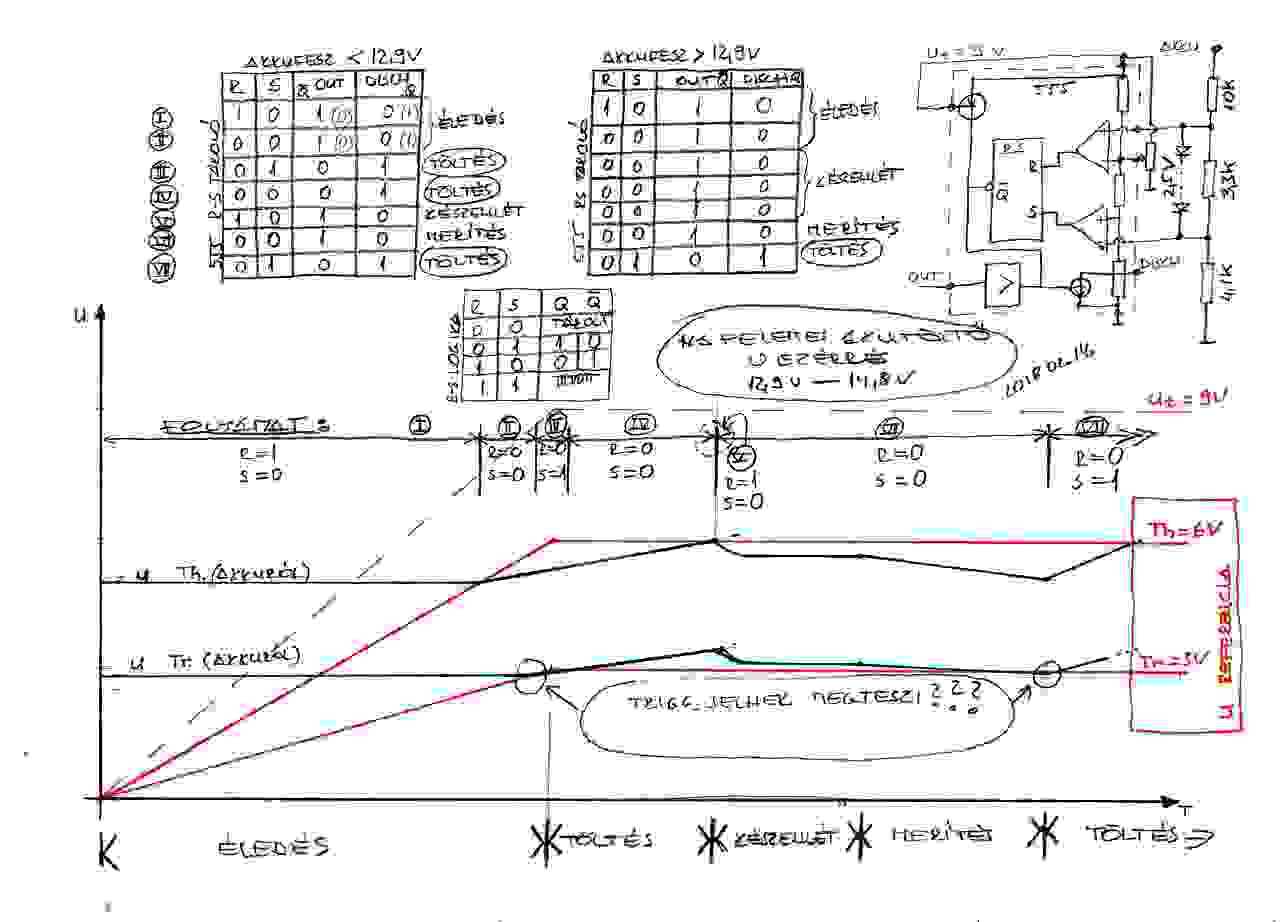 AKKUFESZ < 12,9V
R S Q̄ OUT DISCH Q
I 1 0 1 (0) 0 (1) ÉLEDÉS
II 0 0 1 (0) 0 (1)
III 0 1 0 1 TÖLTÉS
IV 0 0 0 1 TÖLTÉS
1 0 1 0 KÉSZELLÉT
0 0 1 0 MERÍTÉS
VII 0 1 0 1 TÖLTÉS
555 R-S TÁROLÓ
AKKUFESZ > 12,9V
R S OUT Q̄ DISCH Q
1 0 1 0 ÉLEDÉS
0 0 1 0
0 0 1 0 KÉSZELLÉT
0 0 1 0
0 0 1 0
0 0 1 0 MERÍTÉS
0 1 0 1 TÖLTÉS
555 R-S TÁROLÓ
Ut = 9V
AKKU
555
10K
RS
R
Q̄
S
2,5V
3,3K
4,1K
OUT
DISCH
>
R S Q Q̄
0 0 TÁROLT
0 1 1 0
1 0 0 1
1 1
R-S LOGIKA
AKUTÖLTŐ
VEZÉRLÉS
12,9V — 14,8V
2018
Ut = 9V
U
FOLYAMAT :
I
II
III
IV
VII
R=1
S=0
R=0
S=0
R=0
S=1
R=0
S=0
R=1
S=0
R=0
S=0
R=0
S=1
Th=6V
U Th. (AKKURÓL)
U Tr. (AKKURÓL)
Tr=3V
U REFERENCIA
TRIGG. JELNEK MEGTESZI ? ? ?
T
K ÉLEDÉS
TÖLTÉS
KÉSZELLÉT
MERÍTÉS
TÖLTÉS